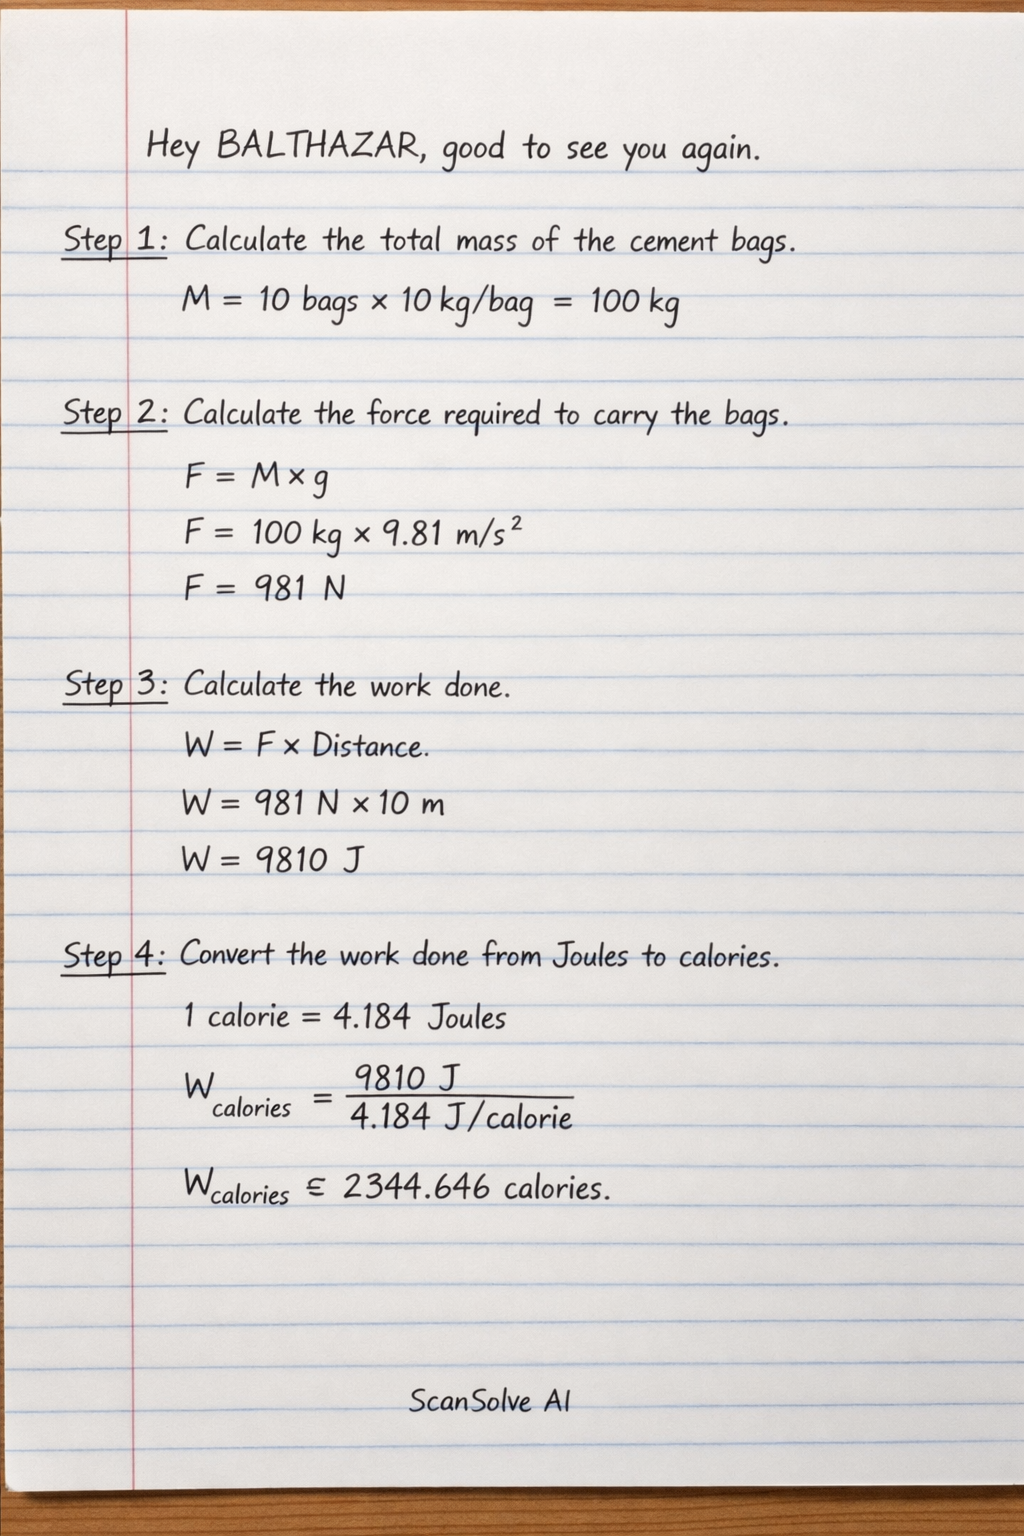 Hey BALTHAZAR, good to see you again.
Step 1: Calculate the total mass of the cement bags.
M = 10 bags × 10 kg/bag = 100 kg
Step 2: Calculate the force required to carry the bags.
F = M × g
F = 100 kg × 9.81 m/s²
F = 981 N
Step 3: Calculate the work done.
W = F × Distance.
W = 981 N × 10 m
W = 9810 J
Step 4: Convert the work done from Joules to calories.
1 calorie = 4.184 Joules
W calories = 9810 J / 4.184 J/calorie
W calories ∈ 2344.646 calories.
ScanSolve AI